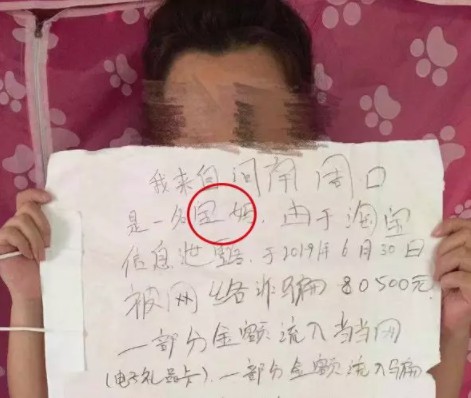 我来自河南周口
是一名宝妈,由于淘宝
信息泄露,于2019年6月30日
被网络诈骗80500元
一部分金额流入当当网
(电子礼品卡),一部分金额流入骗